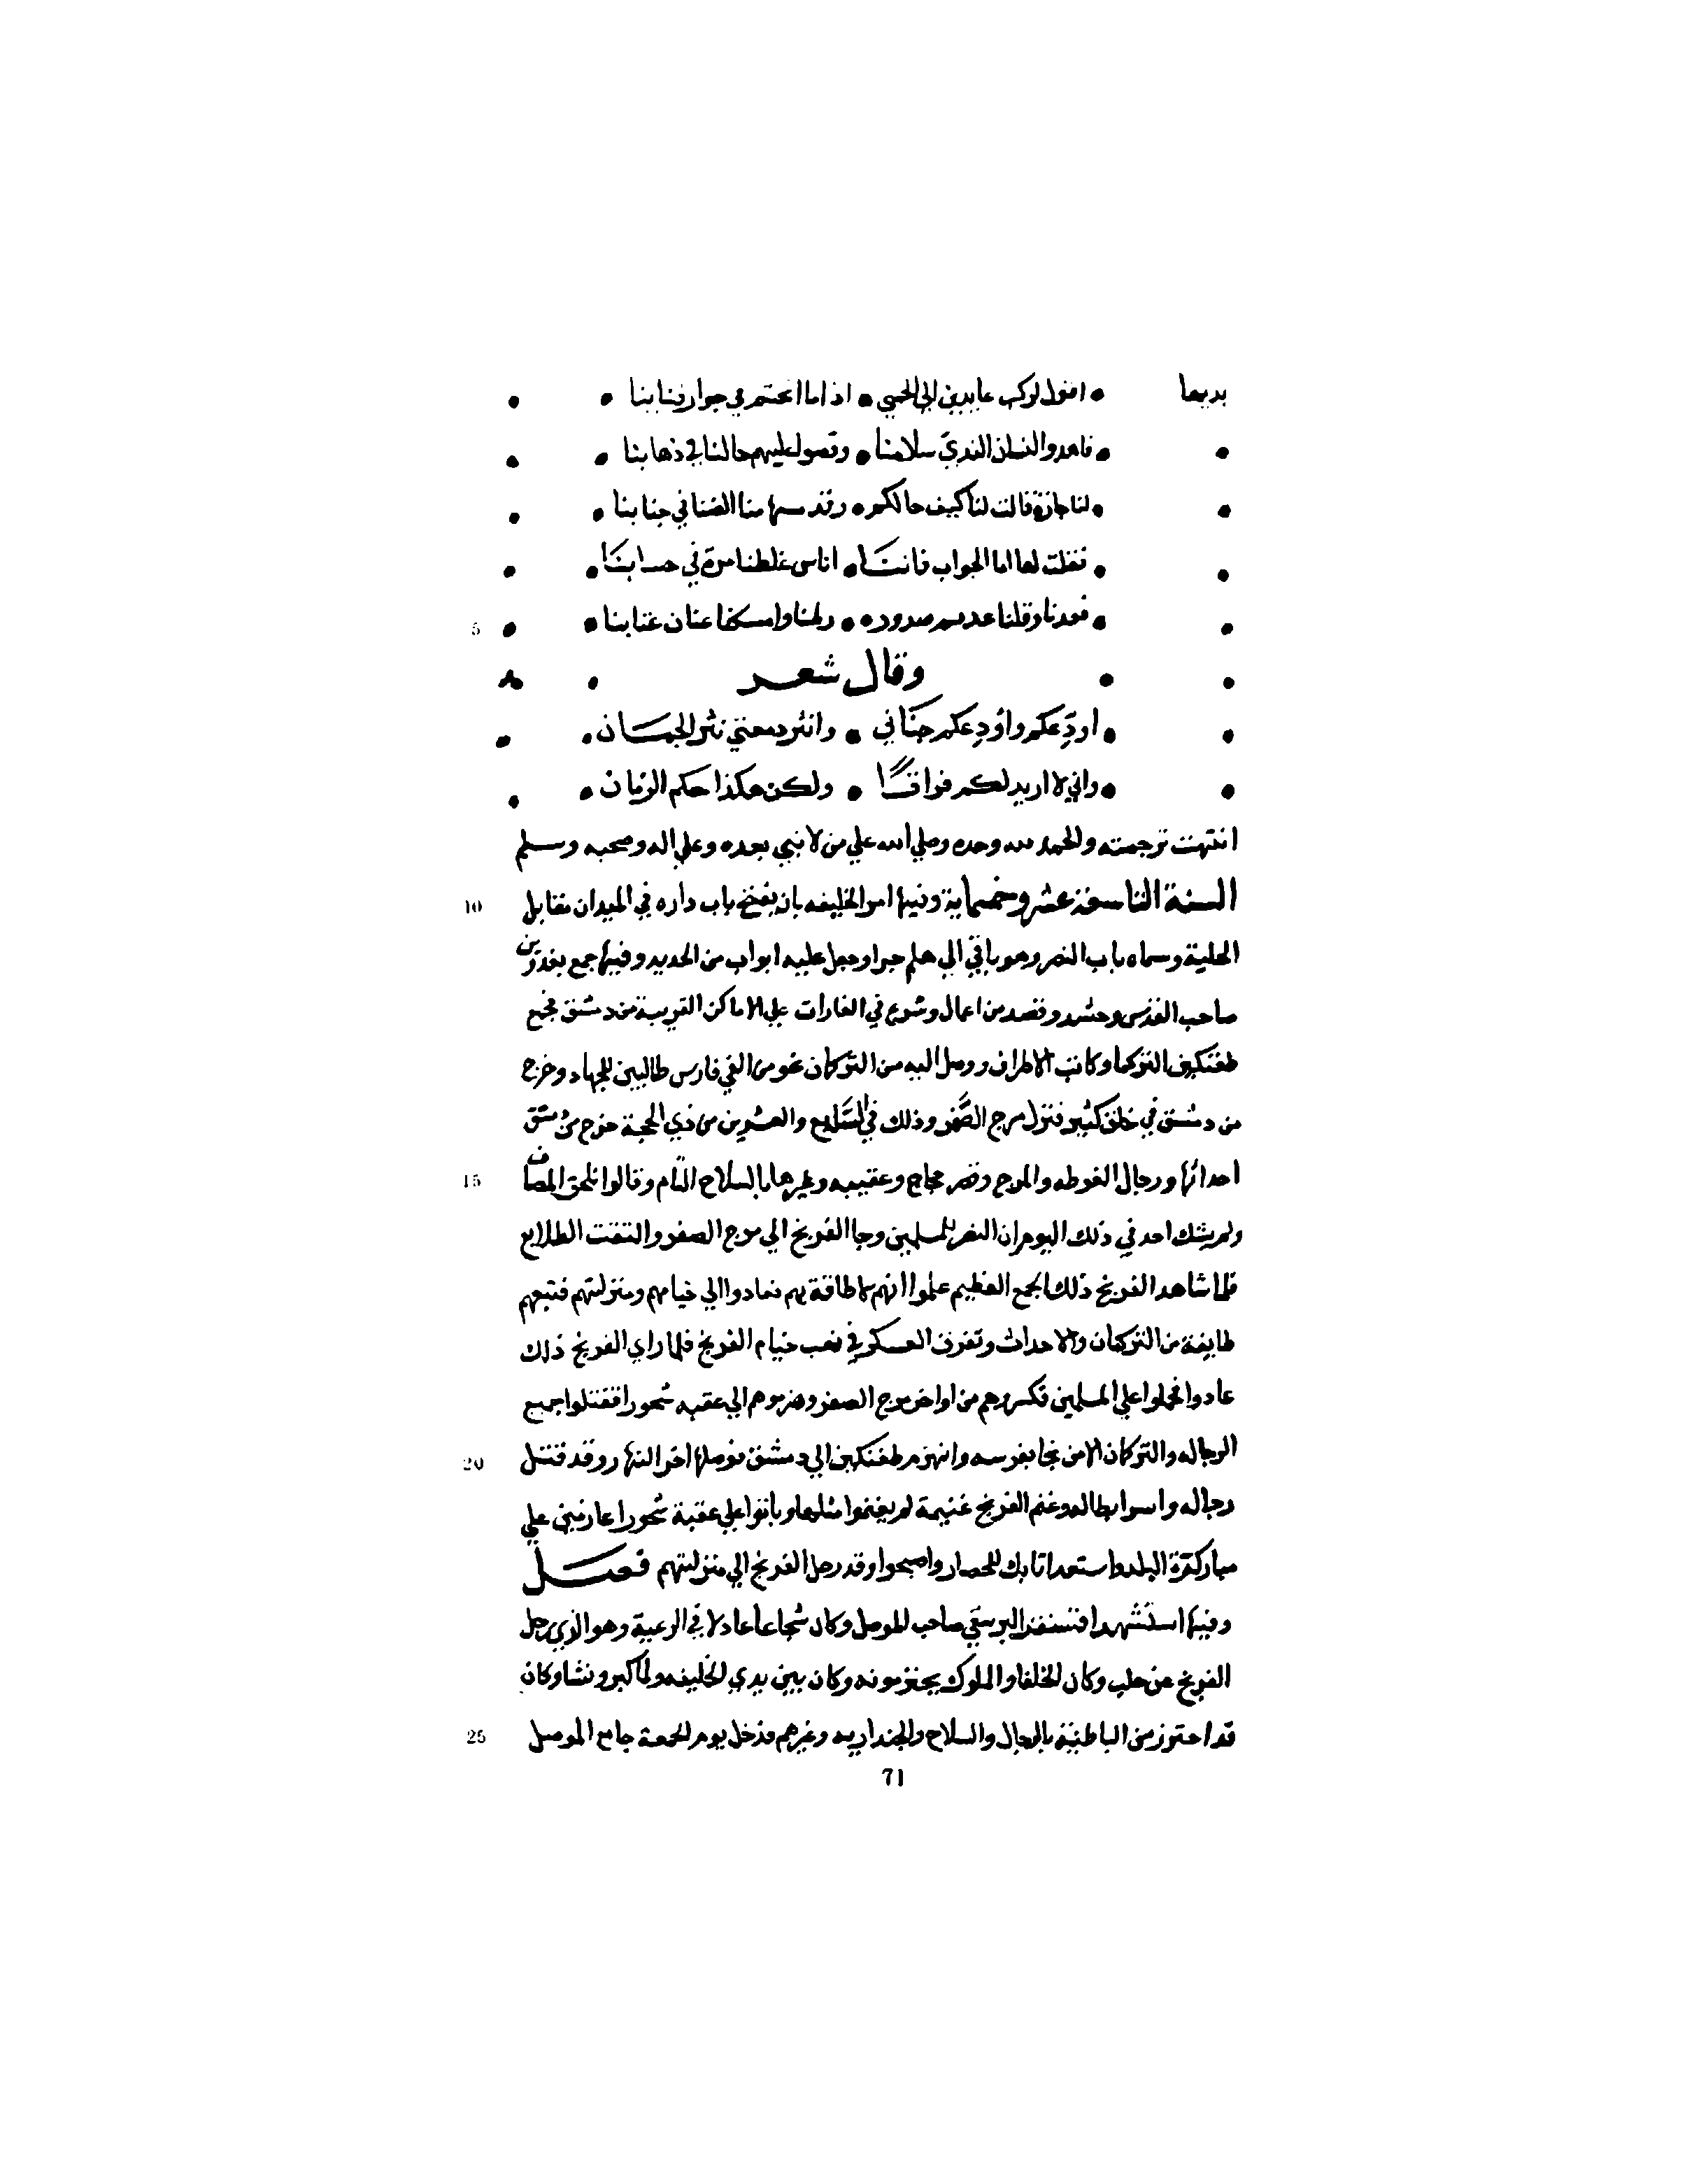 بديها • اقول لركب عايدين الي الحمي • اذا ما اتحتم في جوار قبابنا •
• فاهدوا النسلان الندي سلامنا • وقصوا عليهم حالنا في ذهابنا •
• لنا جازة قالت لنا كيف حالكم • وقد سها منا الضنا في جنابنا •
• فقلت لها اما الجواب فاننا • اناس غلطنا مرة في حسابنا •
• فعدنا وقلنا صدودهم • ولهنا وامسكنا عنان عتابنا • 5
• وقال شعر •
• اودّعكم واُودِعكم جناني • وانثر دمعتي نثر الجمان •
• واني لا اريد لكم فراقًا • ولكن هكذا حكم الزمان •
انتهت ترجمته والحمد لله وحده وصلي الله علي من لا نبي بعده وعلي اله وصحبه وسلم
السنة التاسعة عشر وخمسماية وفيها امر الخليفه بان يفتح باب داره في الميدان مقابل 10
الحلبة وسماه باب النصر وهو باقي الي هلم جرا وجعل عليه ابواب من الحديد وفيها جمع بغدوين
صاحب القدس وحشد وقصد من اعمال وشرع في الغارات علي الاماكن القريبة من دمشق فجمع
طغتكين التركما وكاتب الاطراف ووصل اليه من التركمان نحو من الفي فارس طالبين للجهاد وخرج
من دمشق في خلق كثير فنزل مرج الصُّفر وذلك في السَّابع والعشرين من ذي الحجة خرج من دمشق
احداثها ورجال الغوطه والمرج وقصر حجاج وعقيبه وغيرها بالسلاح التّام وقالوا نلحق المصاف 15
ولم يشك احد في ذلك اليوم ان النصر للمسلمين وجا الفرنج الي مرج الصفر والتقت الطلايع
فلما شاهد الفرنج ذلك الجمع العظيم علموا انهم لا طاقة بهم فعادوا الي خيامهم ومنزلتهم فتبعهم
طايفة من التركمان والاحداث وتفرق العسكر في نهب خيام الفرنج فلما راي الفرنج ذلك
عادوا فحملوا علي المسلمين فكسروهم من اواخر مرج الصفر وهزموهم الي عقبه شحورا فقتلوا جميع
الرجاله والتركمان الا من نجا بفرسه وانهزم طغتكين الي دمشق فوصلها اخر النهار وقد قتل 20
رجاله واسر ابطاله وغنم الفرنج غنيمة لم يغنموا مثلها وباتوا علي عقبة شحورا عازمين علي
مباركرة البلد واستعد اتابك للحصار واصبحوا وقد رحل الفرنج الي منزلتهم فصل
وفيها استشهد اقسنقر البرسقي صاحب الموصل وكان شجاعا عادلا في الرعية وهو الذي رحل
الفرنج عن حلب وكان الخلفا والملوك يحترمونه وكان بين يدي الخليفه ولما كبر ونشا وكان
قد احترز من الباطنية بالرجال والسلاح والجنداريه وغيرهم فدخل يوم الجمعة جامع الموصل 25
71